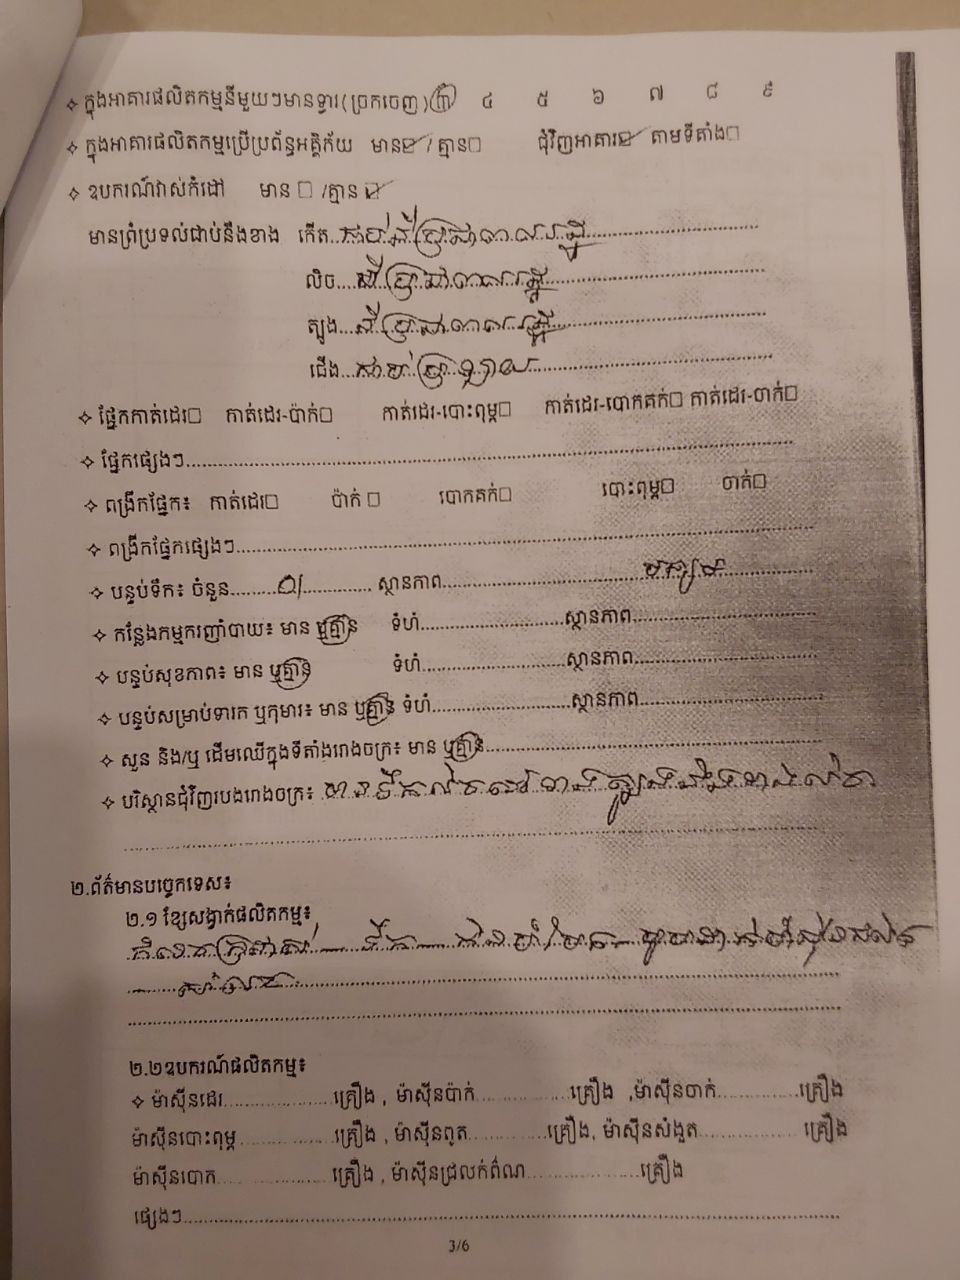 ✧ ក្នុងអាគារផលិតកម្មនីមួយៗមានទ្វារ(ច្រកចេញ) ៣ ៤ ៥ ៦ ៧ ៨ ៩
✧ ក្នុងអាគារផលិតកម្មប្រើប្រព័ន្ធអគ្គិភ័យ មាន☑/គ្មាន□ ជុំវិញអាគារ☑ តាមទីតាំង□
✧ ឧបករណ៍វាស់កំដៅ មាន □ /គ្មាន ☑
មានព្រំប្រទល់ជាប់នឹងខាង កើត..ជាប់ដីប្រជាពលរដ្ឋ
លិច....ដីប្រជាពលរដ្ឋ
ត្បូង...ដីប្រជាពលរដ្ឋ
ជើង...ជាប់ប្រឡាយ
✧ ផ្នែកកាត់ដេរ□ កាត់ដេរ-ប៉ាក់□ កាត់ដេរ-បោះពុម្ព□ កាត់ដេរ-បោកគក់□ កាត់ដេរ-ចាក់□
✧ ផ្នែកផ្សេងៗ
✧ ពង្រីកផ្នែក៖ កាត់ដេរ□ ប៉ាក់ □ បោកគក់□ បោះពុម្ព□ ចាក់□
✧ ពង្រីកផ្នែកផ្សេងៗ
✧ បន្ទប់ទឹក៖ ចំនួន ស្ថានភាព
✧ កន្លែងកម្មករញ៉ាំបាយ៖ មាន ឬគ្មាន ទំហំ ស្ថានភាព
✧ បន្ទប់សុខភាព៖ មាន ឬគ្មាន ទំហំ ស្ថានភាព
✧ បន្ទប់សម្រាប់ទារក ឬកុមារ៖ មាន ឬគ្មាន ទំហំ ស្ថានភាព
✧ សួន និង/ឬ ដើមឈើក្នុងទីតាំងរោងចក្រ៖ មាន ឬគ្មាន
✧ បរិស្ថានជុំវិញរបងរោងចក្រ៖
២.ព័ត៌មានបច្ចេកទេស៖
២.១ ខ្សែសង្វាក់ផលិតកម្ម៖
២.២ឧបករណ៍ផលិតកម្ម៖
✧ ម៉ាស៊ីនដេរ គ្រឿង , ម៉ាស៊ីនប៉ាក់ គ្រឿង ,ម៉ាស៊ីនចាក់ គ្រឿង
ម៉ាស៊ីនបោះពុម្ព គ្រឿង , ម៉ាស៊ីនពូត គ្រឿង, ម៉ាស៊ីនសំងួត គ្រឿង
ម៉ាស៊ីនបោក គ្រឿង , ម៉ាស៊ីនជ្រលក់ពណ៌ គ្រឿង
ផ្សេងៗ
3/6